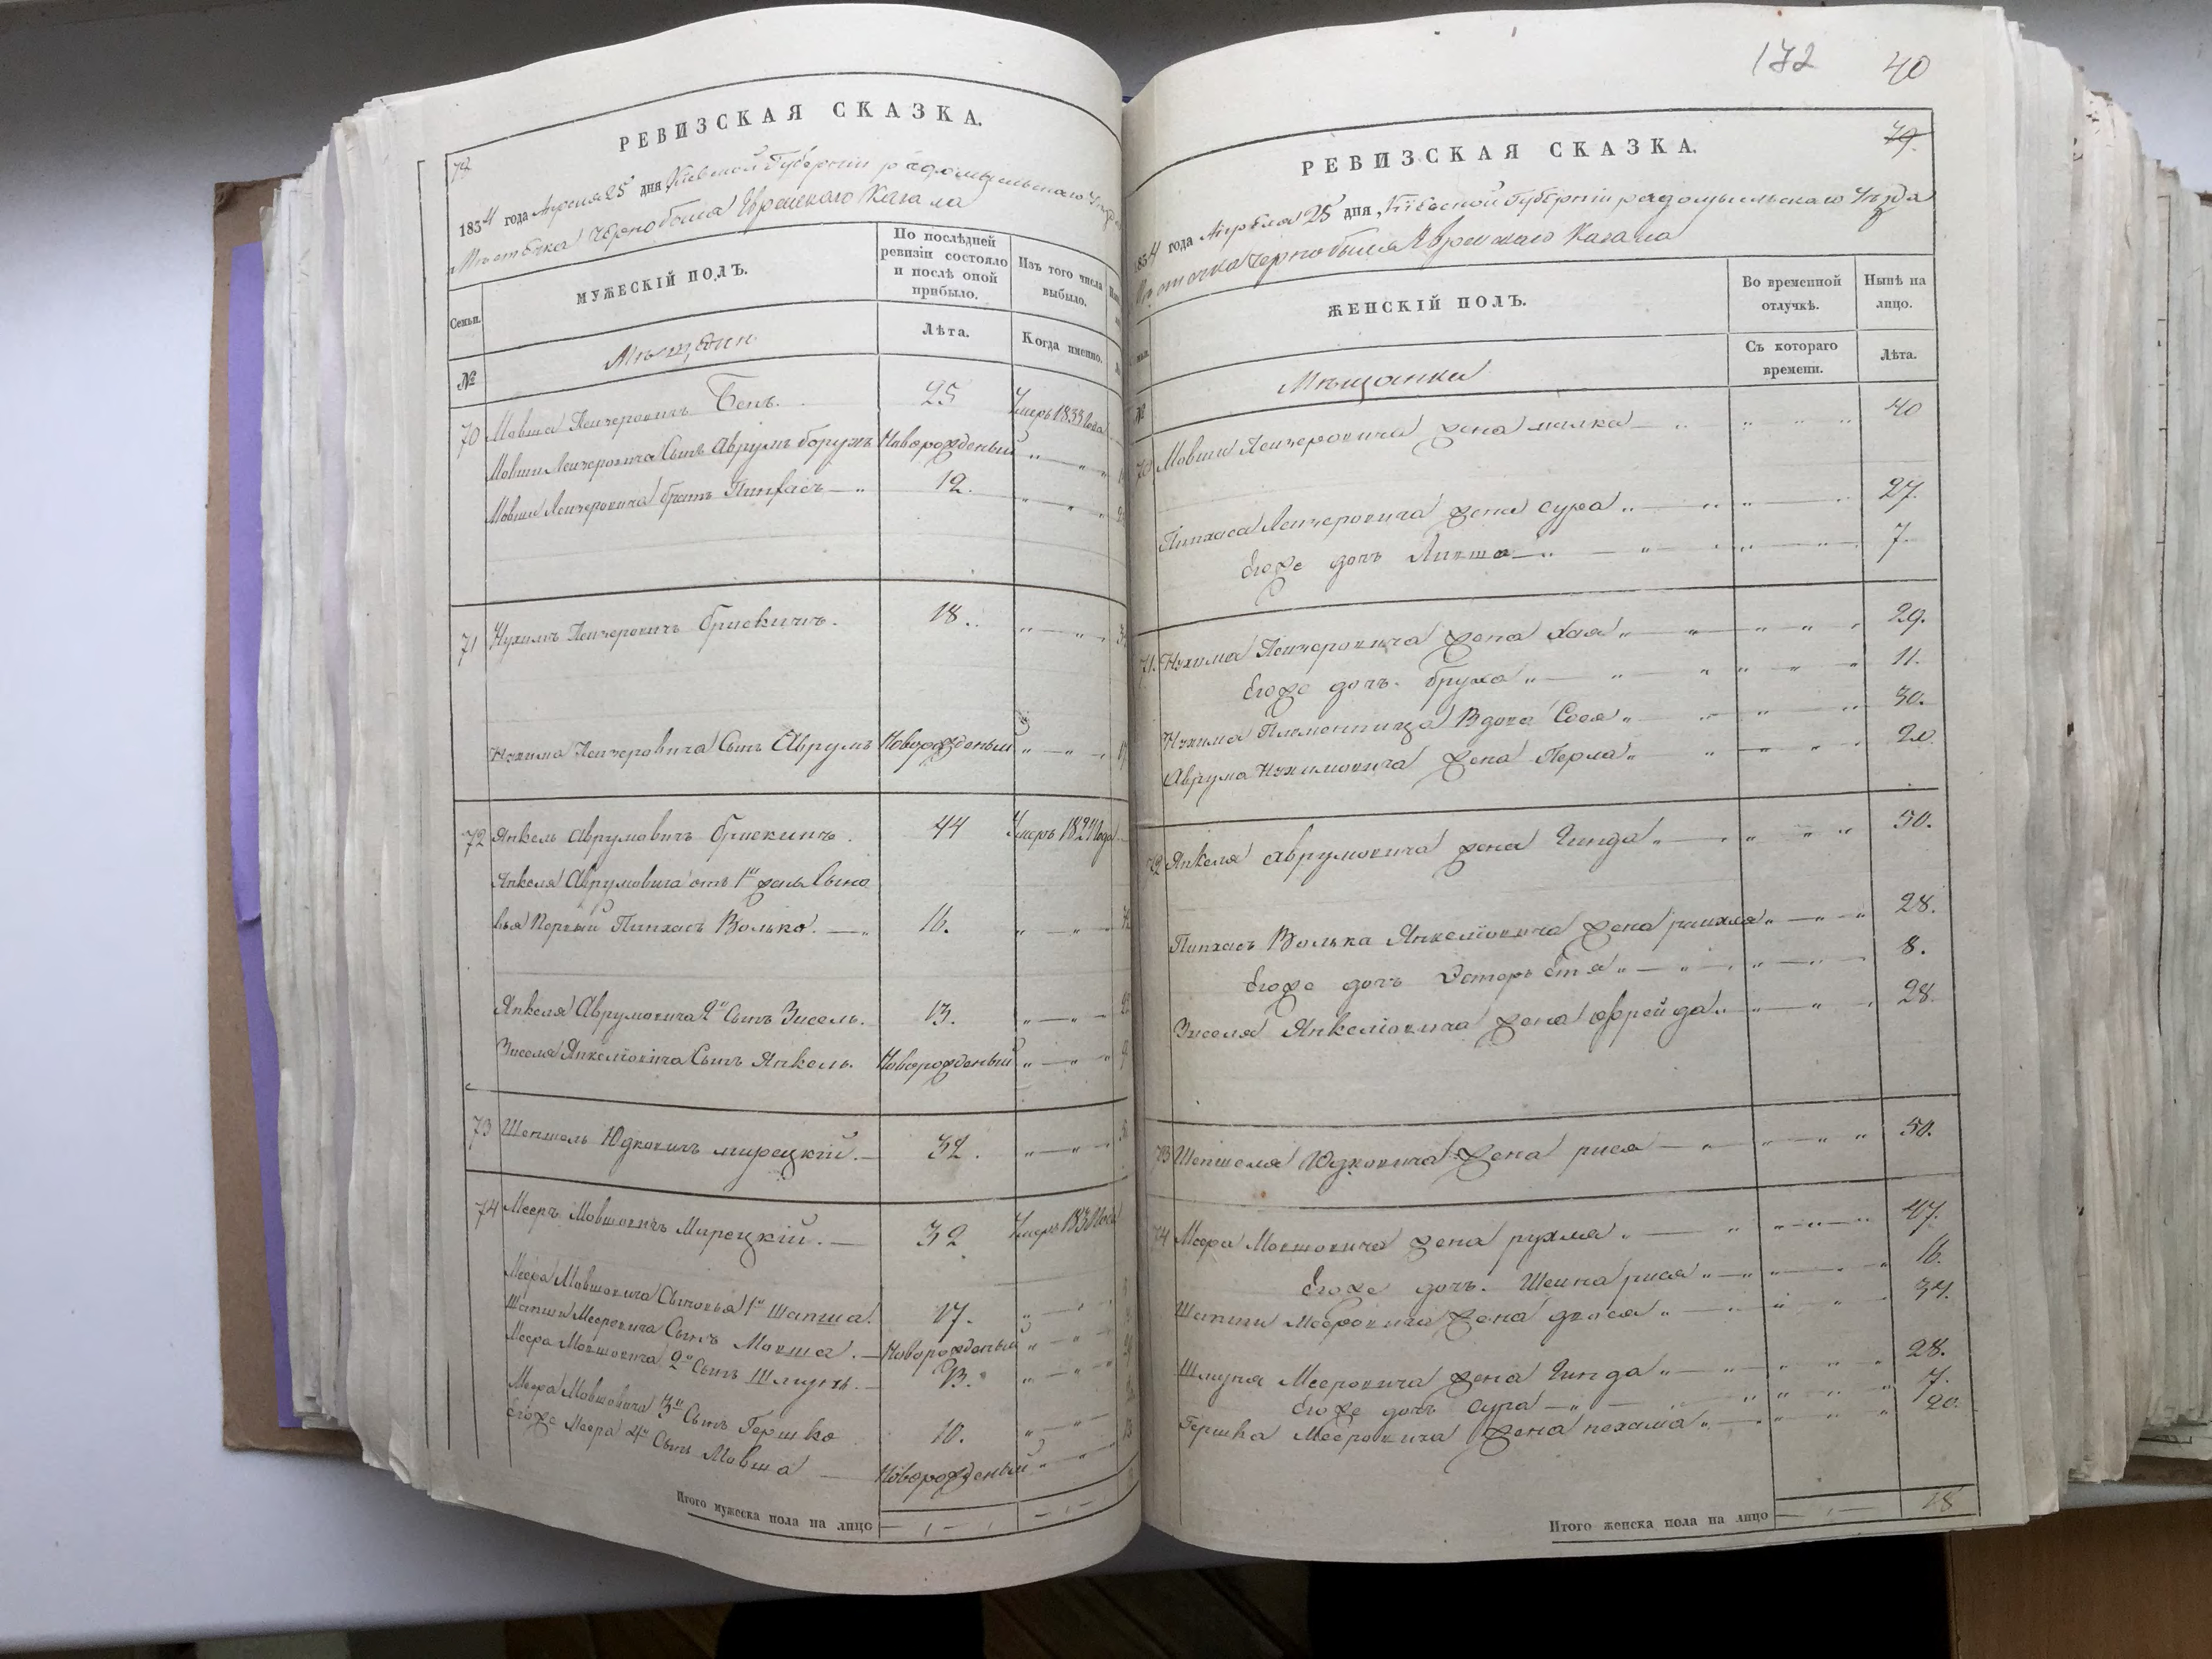 72
РЕВИЗСКАЯ СКАЗКА.
1834 года Апреля 25 дня Киевской Губернии радомысльского
Местечка Чернобыля Еврейского Кагала
Семьи.
МУЖЕСКІЙ ПОЛЪ.
По послѣдней ревизіи состояло и послѣ оной прибыло.
Изъ того числа выбыло.
№
Мещане
Лѣта.
Когда именно.
70 Мовша Лейзеровичъ 25 Умеръ 1833 года
Мовши Лейзеровича Сынъ Аврумъ борухъ Новорожденый
Мовши Лейзеровича братъ Пинхасъ 12.
71 Нухимъ Лейзеровичъ 18.
Нухима Лейзеровича Сынъ Аврумъ Новорожденый
72 Янкель Аврумовичъ 44 Умеръ 1827 года
Янкеля Аврумовича отъ 1й жены Сыно
вья Первый Пинхасъ Волько. 16.
Янкеля Аврумовича 2й Сынъ Зисель. 13.
Зиселя Янкелѣовича Сынъ Янкель. Новорожденый
73 Шепшель Юдковичъ мирецкій. 32.
74 Мееръ Мовшовичъ Мирецкій. 32 Умеръ года
Меера Мовшовича Сыновья 1й Шапша. 17.
Шапши Мееровича Сынъ Мовша. Новорожденый
Меера Мовшовича 2й Сынъ Шлиума. 13.
Меера Мовшовича 3й Сынъ Гершко 10.
Егоже Меера 4й Сынъ Мовша Новорожденый
Итого мужеска пола на лицо
172 40
РЕВИЗСКАЯ СКАЗКА.
1834 года Апреля 25 дня, Кіевской Губерніи радомысльскаго Уезда
Местечка Чернобыля Еврейскаго Кагала
ЖЕНСКІЙ ПОЛЪ.
Во временной отлучкѣ.
Нынѣ на лицо.
№
Мещанки
Съ котораго времени.
Лѣта.
70 Мовши Лейзеровича жена малка 40
Пинхаса Лейзеровича жена сура 27.
Егоже дочь Ривша 7.
71. Нухима Лейзеровича жена хая 29.
Егоже дочь. бруха 11.
Нухима Племянница Вдова Сося 30.
Аврума Нухимовича жена Перла 20.
72 Янкеля аврумовича жена Гинда 50.
Пинхасъ Волька Янкелѣовича жена рихля 28.
Егоже дочь Эстеръ Етя 8.
Зиселя Янкелѣовича жена фрейда 28.
73 Шепшеля Юдковича жена рися 50.
74 Меера Мовшовича жена рухля 47.
Егоже дочь. Шейна рися 16.
Шапши Мееровича жена двося 34.
Мееровича жена Гинда 28.
Егоже дочь сура 7.
Гершка Мееровича жена нехама 20.
Итого женска пола на лицо 18